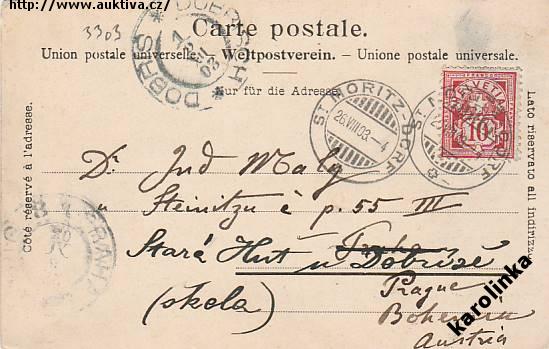 http://www.auktiva.cz
3303
Carte postale.
Union postale universelle. – Weltpostverein. – Unione postale universale.
Nur für die Adresse.
DOBŘÍŠ * DOBRISCH *
ST. MORITZ-DORF
26.VIII.03. – 4
HELVETIA
10
Côté réservé à l'adresse.
Lato riservato all indirizzo.
Dr. Jud Malý
u Steinitzu č p. 55 III
Praha
Stará Huť u Dobříše
(škola)
Prague
Bohemia
Austria
karolinka